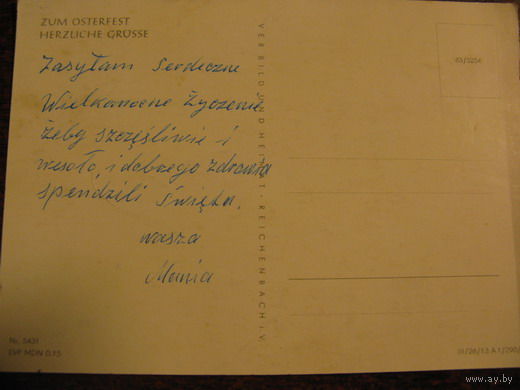 ZUM OSTERFEST
HERZLICHE GRÜSSE
Zasyłam Serdeczne
Wielkanocne Życzenie
żeby szczęśliwie i
wesoło, i dobrego zdrowia
spendzili Święta.
wasza
Mania
VEB BILD UND HEIMAT · REICHENBACH i. V.
Nr. 5431
EVP MDN 0.15
www.ay.by